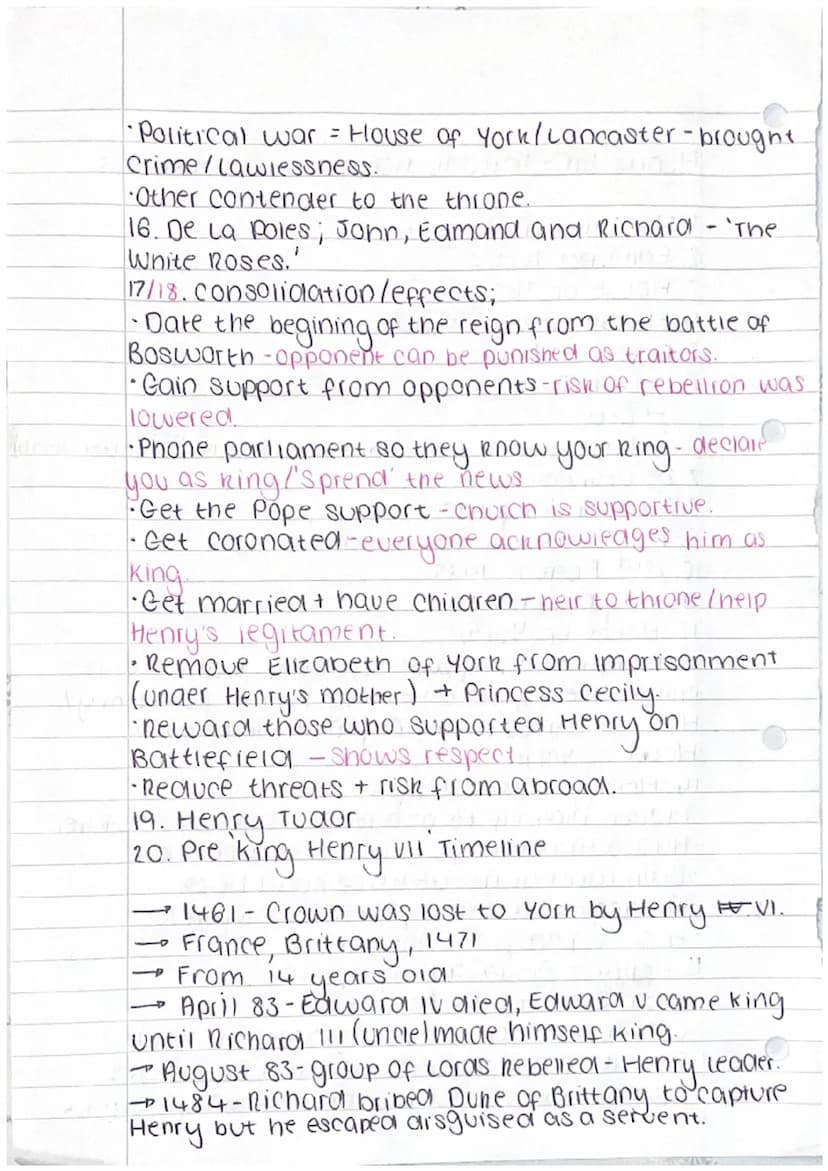 ·Political war = House of York/Lancaster - brought
crime/lawlessness.
·Other contender to the throne.
16. De La Poles; John, Edmand and Richard - 'The
White Roses.'
17/18. consolidation/effects;
·Date the begining of the reign from the battle of
Bosworth - opponent can be punished as traitors.
·Gain support from opponents - risk of rebellion was
lowered.
·Phone parliament so they know your king - declare
you as king/'Sprend' the news
·Get the Pope support - church is supportive.
·Get coronated - everyone acknowledges him as
king.
·Get married + have children - heir to throne/help
Henry's legitament.
·Remove Elizabeth of York from imprisonment
(under Henry's mother) + Princess Cecily.
·reward those who supported Henry on
Battlefield - Shows respect
·Reduce threats + risk from abroad.
19. Henry Tudor
20. Pre 'king Henry VII' Timeline
→ 1461 - Crown was lost to York by Henry IV VI.
→ France, Brittany, 1471
→ From 14 years old
→ April 83 - Edward IV died, Edward V came king
until Richard III (uncle) made himself king.
→ August 83 - group of lords rebelled - Henry leader.
→ 1484 - Richard bribed Duke of Brittany to capture
Henry but he escaped disguised as a servent.